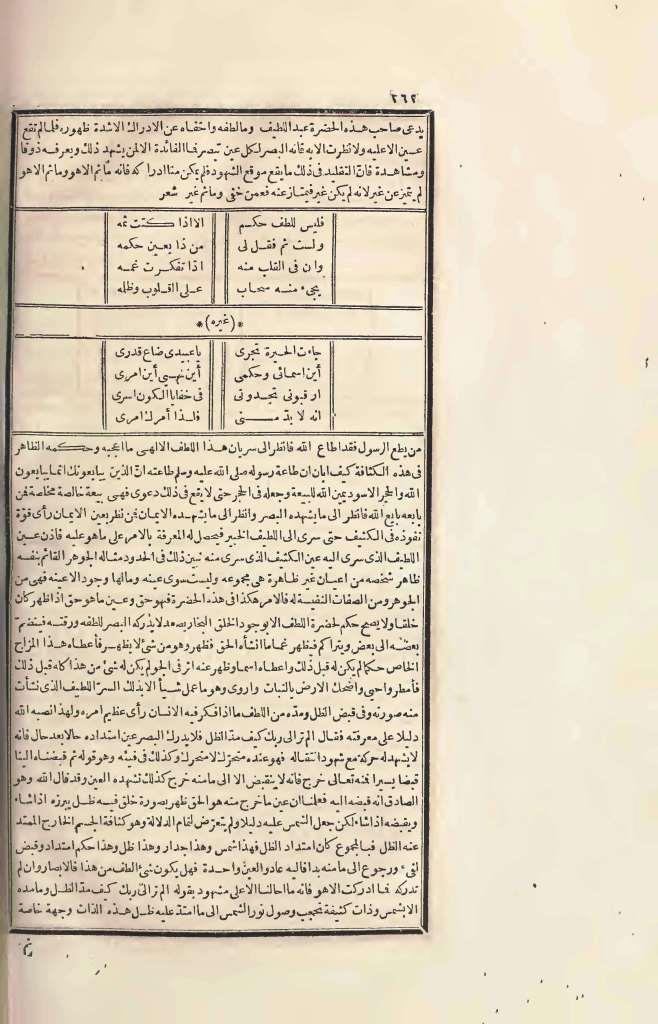 ٢٦٢
يدعى صاحب هذه الحضرة عبد اللطيف وما لطفه واخفاه عن الادراك الاشدة ظهوره فلما لم تقع
عين الا عليه ولا نظرت الا به فانه البصر لكل عين تبصر فما الفائدة الا لمن يشهد ذلك ويعرفه ذوقا
ومشاهدة فان التقليد فى ذلك ما يقع موقع الشهود فلم يكن منا ادراكه فانه ما ثم الا هو وما ثم الا هو
لم يتميز عن غير لانه لم يكن غير فيمتاز عنه فعمن خفى وما ثم غير شعر
فليس للطف حكم الا اذا كنت ثمه
ولست ثم فقل لى من ذا بعين حكمه
وان فى القلب منه اذا تفكرت غمه
يجىء منه سحاب على القلوب وظلمه
*(غيره)*
جاءت الحيرة تجرى يا عبيدى ضاع قدرى
أين اسمائى وحكمى أين نهيى أين امرى
ارقبونى تجدونى فى خفايا الكون اسرى
انه لا بد منى فلذا أمرك امرى
من يطع الرسول فقد اطاع الله فانظر الى سريان هذا اللطف الالهى ما اعجبه وحكمه الظاهر
فى هذه الكثافة كيف ابان ان طاعة رسوله صلى الله عليه وسلم طاعته ان الذين يبايعونك انما يبايعون
الله والحجر الاسود يمين الله للبيعة وجعله فى الحجر حتى لا يقع فى ذلك دعوى فهى بيعة خالصة مخلصة فمن
بايعه بايع الله فانظر الى ما يشهده البصر وانظر الى ما يشهده الايمان فمن نظر بعين الايمان رأى قوة
نفوذه فى الكثيف حتى سرى الى اللطيف الخبير فيحصل له المعرفة بالامر على ما هو عليه فاذن عين
اللطيف الذى سرى اليه عين الكثيف الذى سرى منه تبين ذلك فى الحدود مثاله الجوهر القائم بنفسه
ظاهر شخصه من اعيان غير ظاهرة هى مجموعه وليست سوى عينه وما لها وجود الا عينه فهى من
الجوهر ومن الصفات النفسية له فالامر هكذا فى هذه الحضرة فهو حق وعين ما هو حق اذ اظهر كان
خلقا ولا يصح حكم لحضرة اللطف الا بوجود الخلق البخار يصعد لا يدركه البصر للطفه ورقته فينضم
بعضه الى بعض ويتراكم فيظهر غماما انشأه الحق فظهر وهو من شئ لا يظهر فأعطاه هذا المزاج
الخاص حكما لم يكن له قبل ذلك واعطاه اسما وظهر عنه اثر فى الجو لم يكن له شئ من هذا كله قبل ذلك
فأمطر واحيى واضحك الارض بالنبات واروى وهو ما عمل شيأ الا بذلك السر اللطيف الذى نشأت
منه صورته وفى قبض الظل ومده من اللطف ما اذا فكر فيه الانسان رأى عظيم امره ولهذا نصبه الله
دليلا على معرفته فقال الم تر الى ربك كيف مد الظل فلا يدرك البصر عين امتداده حالا بعد حال فانه
لا يشهد له حركة مع شهود انتقاله فهو عنده متحرك لا متحرك وكذلك فى فيئه وهو قوله ثم قبضناه الينا
قبضا يسيرا فمنه تعالى خرج فانه لا ينقبض الا الى ما منه خرج كذلك تشهده العين وقد قال الله وهو
الصادق انه قبضه اليه فعلمنا ان عين ما خرج منه هو الحق ظهر بصورة خلق فيه ظل يبرزه اذا شاء
ويقبضه اذا شاء لكن جعل الشمس عليه دليلا ولم يتعرض لتمام الدلالة وهو كثافة الجسم الخارج الممتد
عنه الظل فبالمجموع كان امتداد الظل فهذا شمس وهذا جدار وهذا ظل وهذا حكم امتداد وقبض
افىء ورجوع الى ما منه بدا فاليه عاد والعين واحدة فهل يكون شئ الطف من هذا فالابصار وان لم
تدركه فما ادركت الا هو فانه ما احالنا الا على مشهود بقوله الم تر الى ربك كيف مد الظل وما مده
الا بشمس وذات كثيفة تحجب وصول نور الشمس الى ما امتد عليه ظل هذه الذات وجهة خاصة